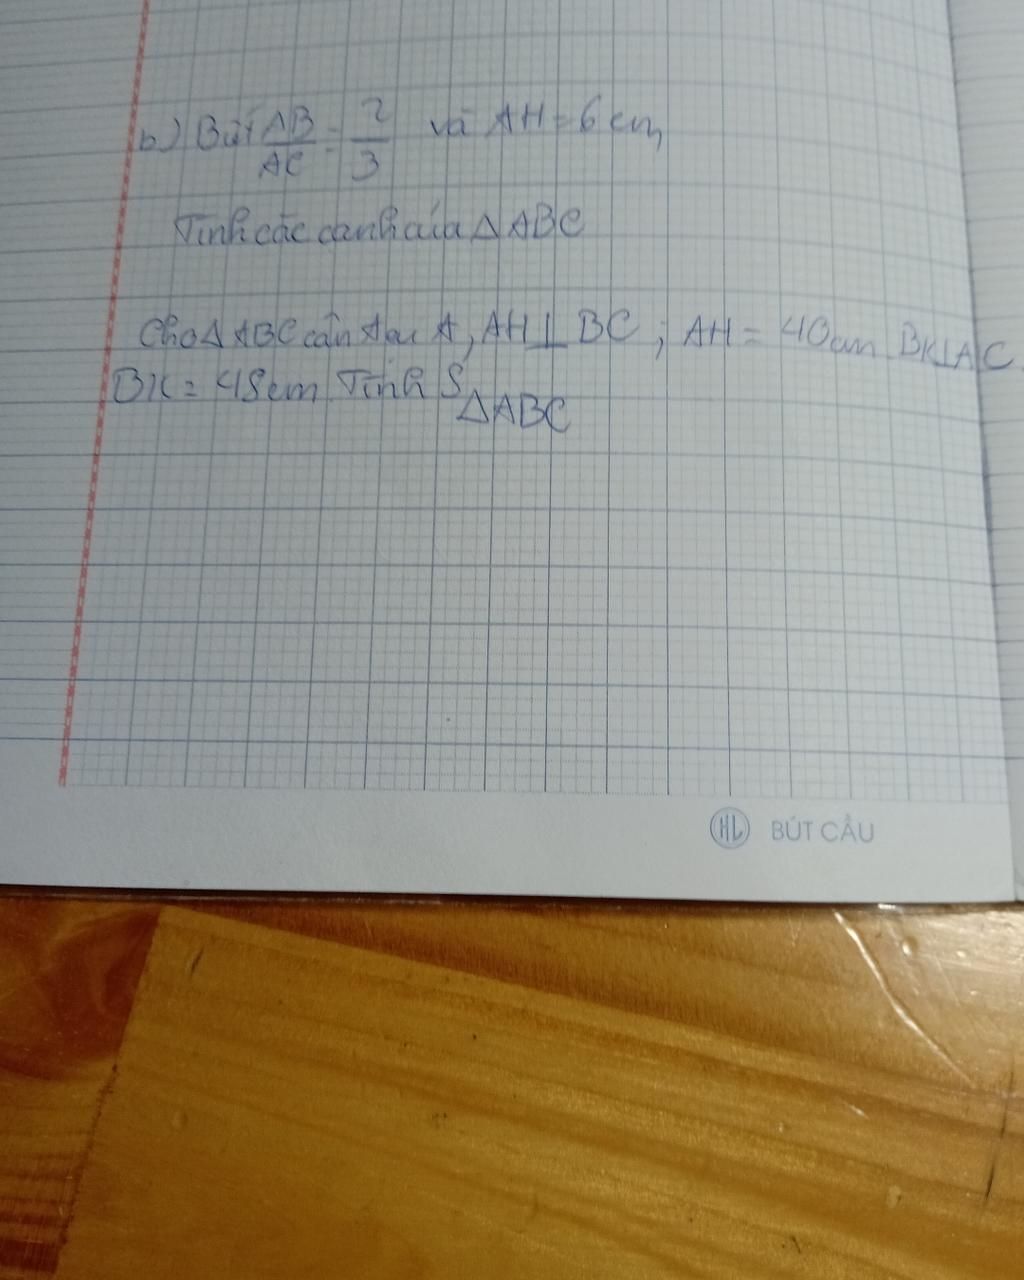 b) Biết AB/AC = 2/3 và AH = 6cm,
Tính các cạnh của △ABC
Cho △ABC cân tại A, AH⊥BC; AH = 40cm BK⊥AC,
BK = 48cm Tính S△ABC
HL BÚT CẦU